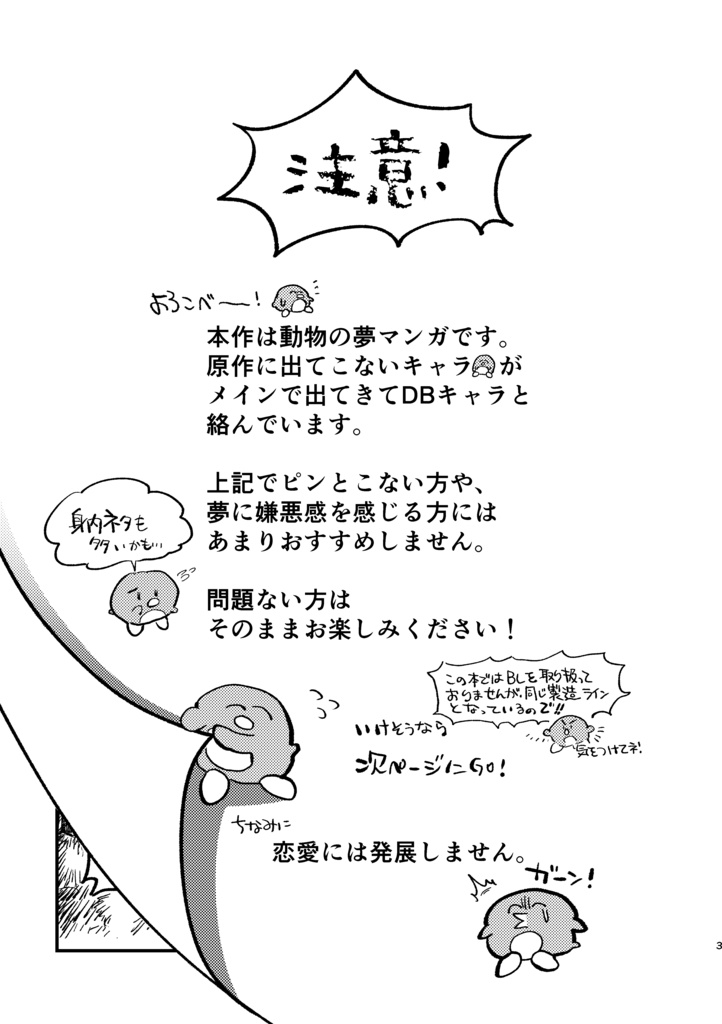 注意!
よろこべー!
本作は動物の夢マンガです。
原作に出てこないキャラが
メインで出てきてDBキャラと
絡んでいます。
上記でピンとこない方や、
夢に嫌悪感を感じる方には
あまりおすすめしません。
身内ネタも
多いかも…
問題ない方は
そのままお楽しみください！
この本ではBLを取り扱って
おりませんが、同じ製造ライン
となっているので!!
気をつけてネ!
いけそうなら
次ページにGO!
ちなみに
恋愛には発展しません。
ガーン!
3